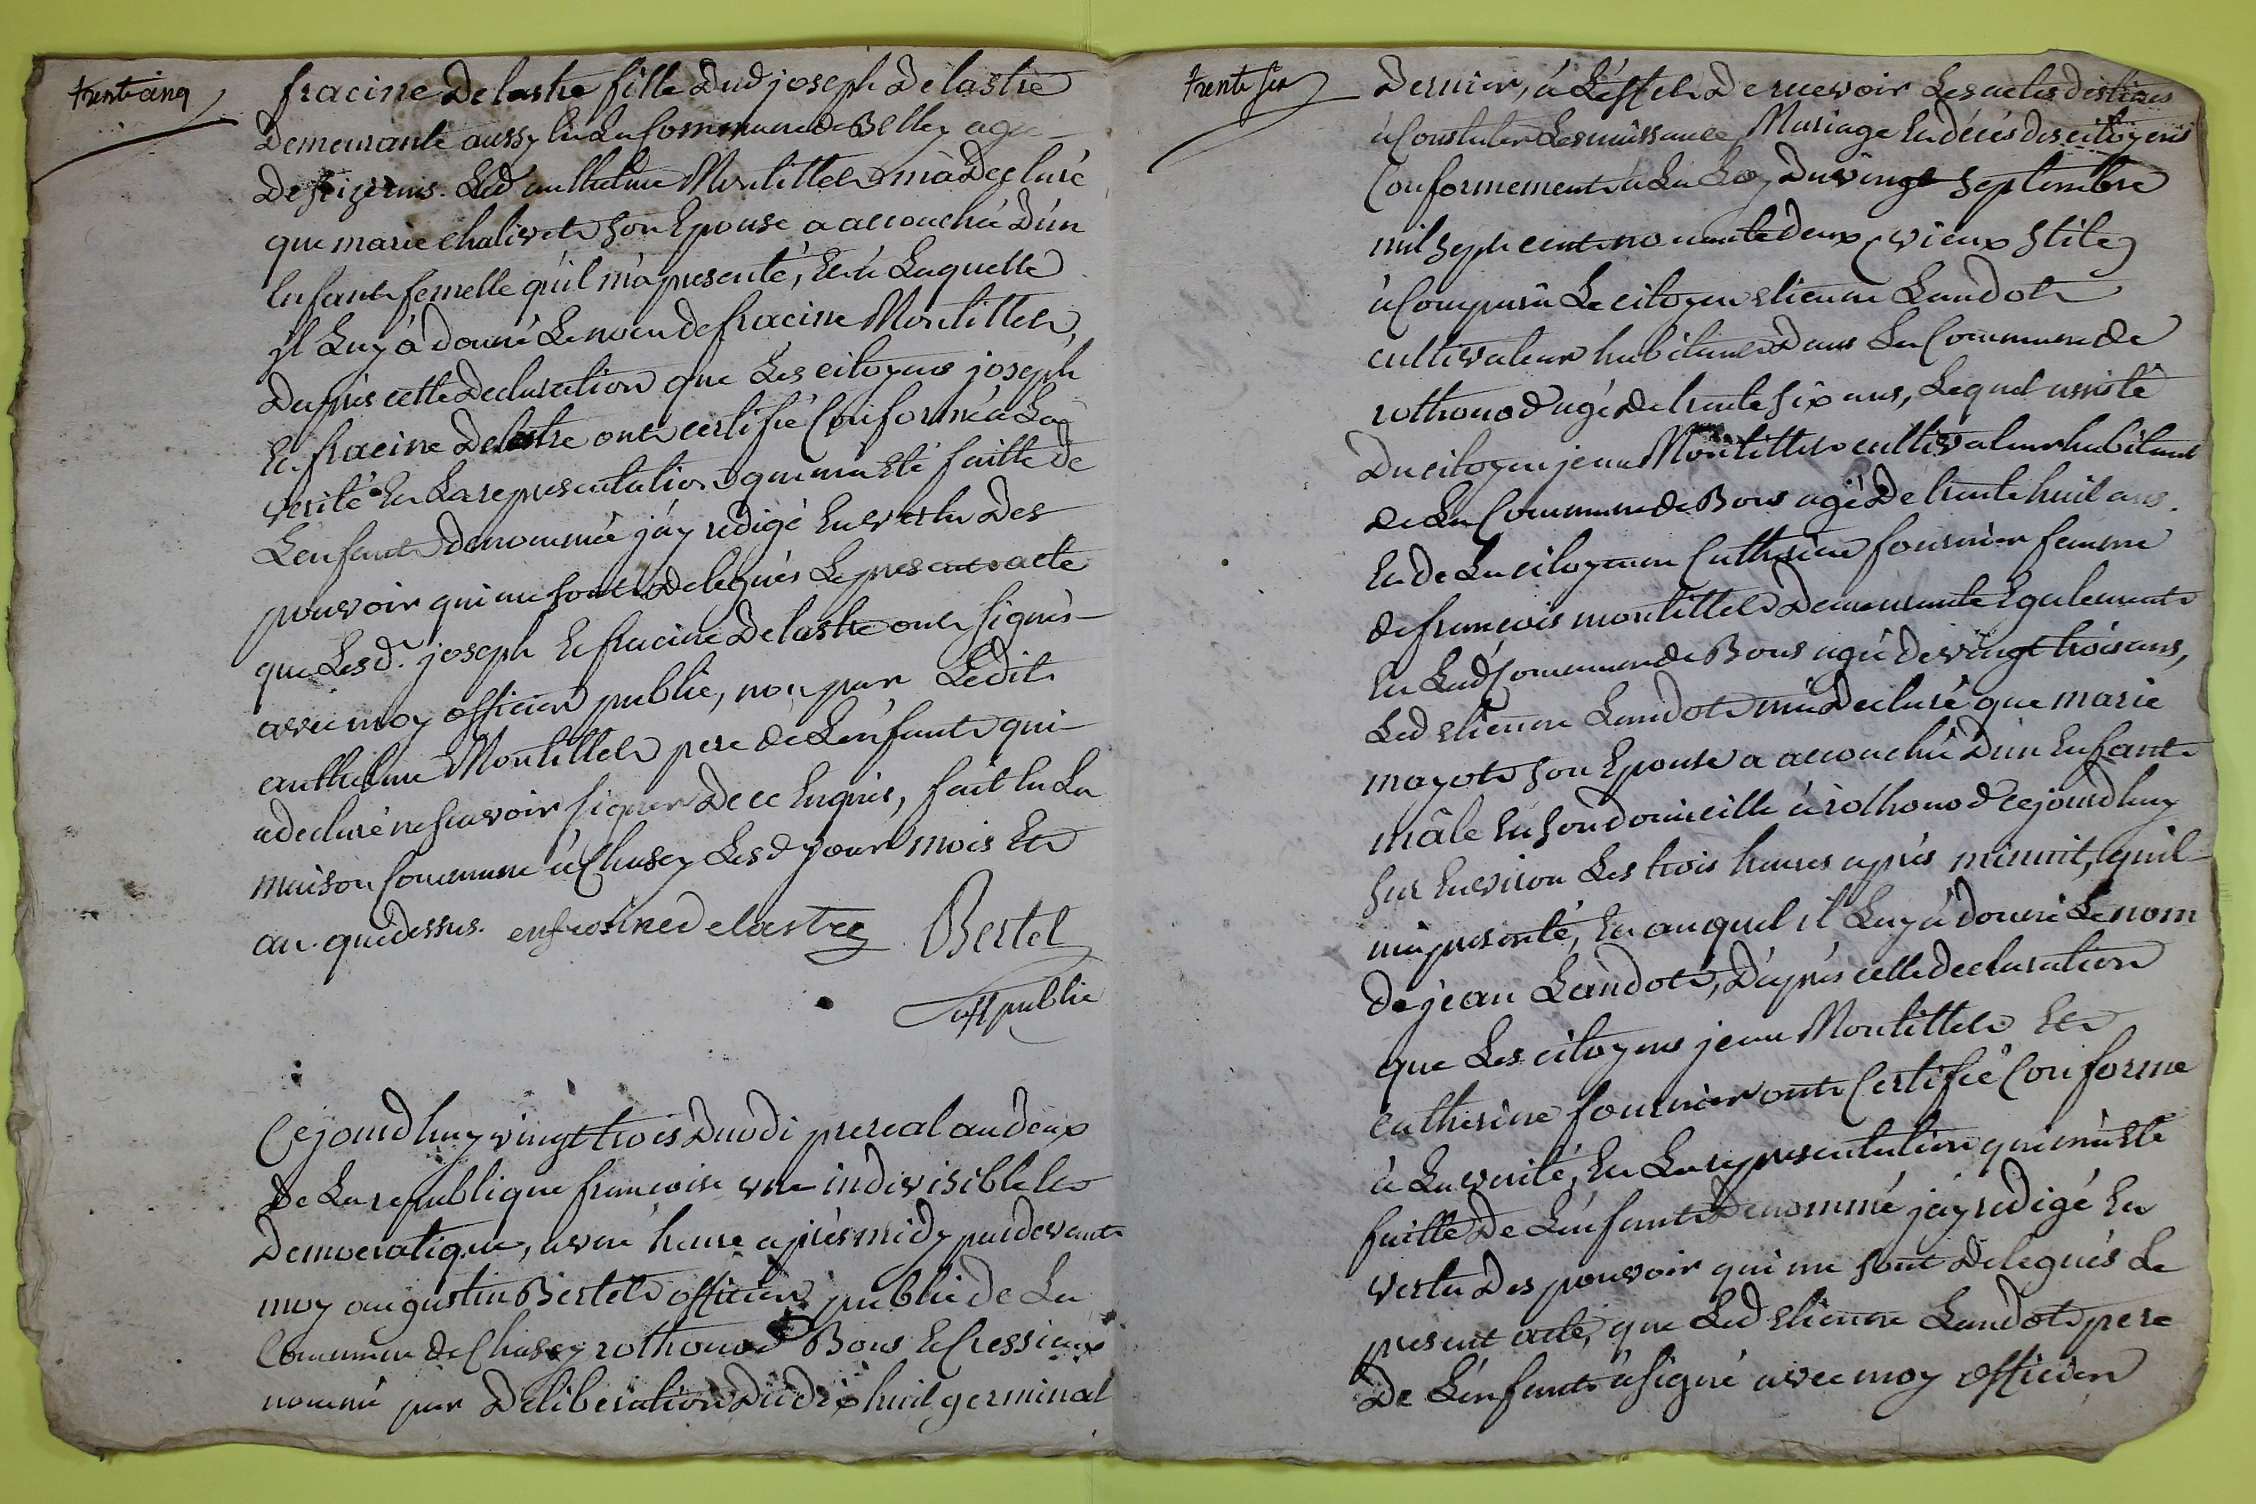 trente cinq
fracine Delastre fille Dud joseph Delastre
Demeurante aussy En La Commune de Belley agée
De seize ans. Led anthelme Montillet m'à Declaré
que marie chalivet son Epouse a accouchée D'un
Enfant femelle qu'il m'a presenté, Et à Laquelle
il Luy à donné Le nom de fracine Montillet,
Daprès cette Declaration que Les citoyens joseph
Et fracine Delastre ont certifié Conforme à La
verité Et La representation qui m'a Eté faitte de
L'enfant denommé j'ay redigé En vertu Des
pouvoir qui me sont Delegués Le present acte
que Lesd. joseph Et fracine Delastre ont signés
avec moy officier public, non par Ledit
anthelme Montillet pere de L'enfant qui
a declaré ne scavoir signer De ce Enquis, fait En La
maison Commune à Chasey Lesd jour mois Et
an que dessus. enfrosine delastre Bertet
off public
Cejourdhuy vingt trois Duodi prereal an deux
De La republique francoise une indivisible Et
Democratique, a une heure après midy pardevant
moy augustin Bertet officier public de La
Commune de Chasey rothonod Bons Et Cressieux
nommé par Deliberation Du dix huit germinal
trente six
Dernier, à L'effet De recevoir Les actes destinés
à Constater Les naissance, Mariage Et décés des citoyens
Conformement à La Loy Du vingt septembre
mil sept cent nonante deux (vieux stile)
à Comparu Le citoyen etienne Landot
cultivateur habitant Dans La Commune de
rothonod agé de trente six ans, Lequel assisté
Du citoyen jean Montillet cultivateur habitant
de La Commune de Bons agé De trente huit ans.
Et de La citoyenne Catherine fournier femme
de francois montillet Demeurante Egalement
En Lad Commune de Bons agée de vingt trois ans,
Led etienne Landot m'a Declaré que marie
mayot son Epouse a accouchée D'un Enfant
mâle En son domicille à rothonod cejourdhuy
sur Environ Les trois heures après minuit, qu'il
m'a presenté, Et auquel il Luy à donné Le nom
De jean Landot, D'après cette declaration
que Les citoyens jean Montillet Et
catherine fournier ont Certifié Conforme
à La verité, Et La representation qui m'a Eté
faitte De L'enfant Denommé j'ay redigé En
vertu Des pouvoir qui me sont Delegués Le
present acte, que Led etienne Landot pere
De L'enfant à signé avec moy officier